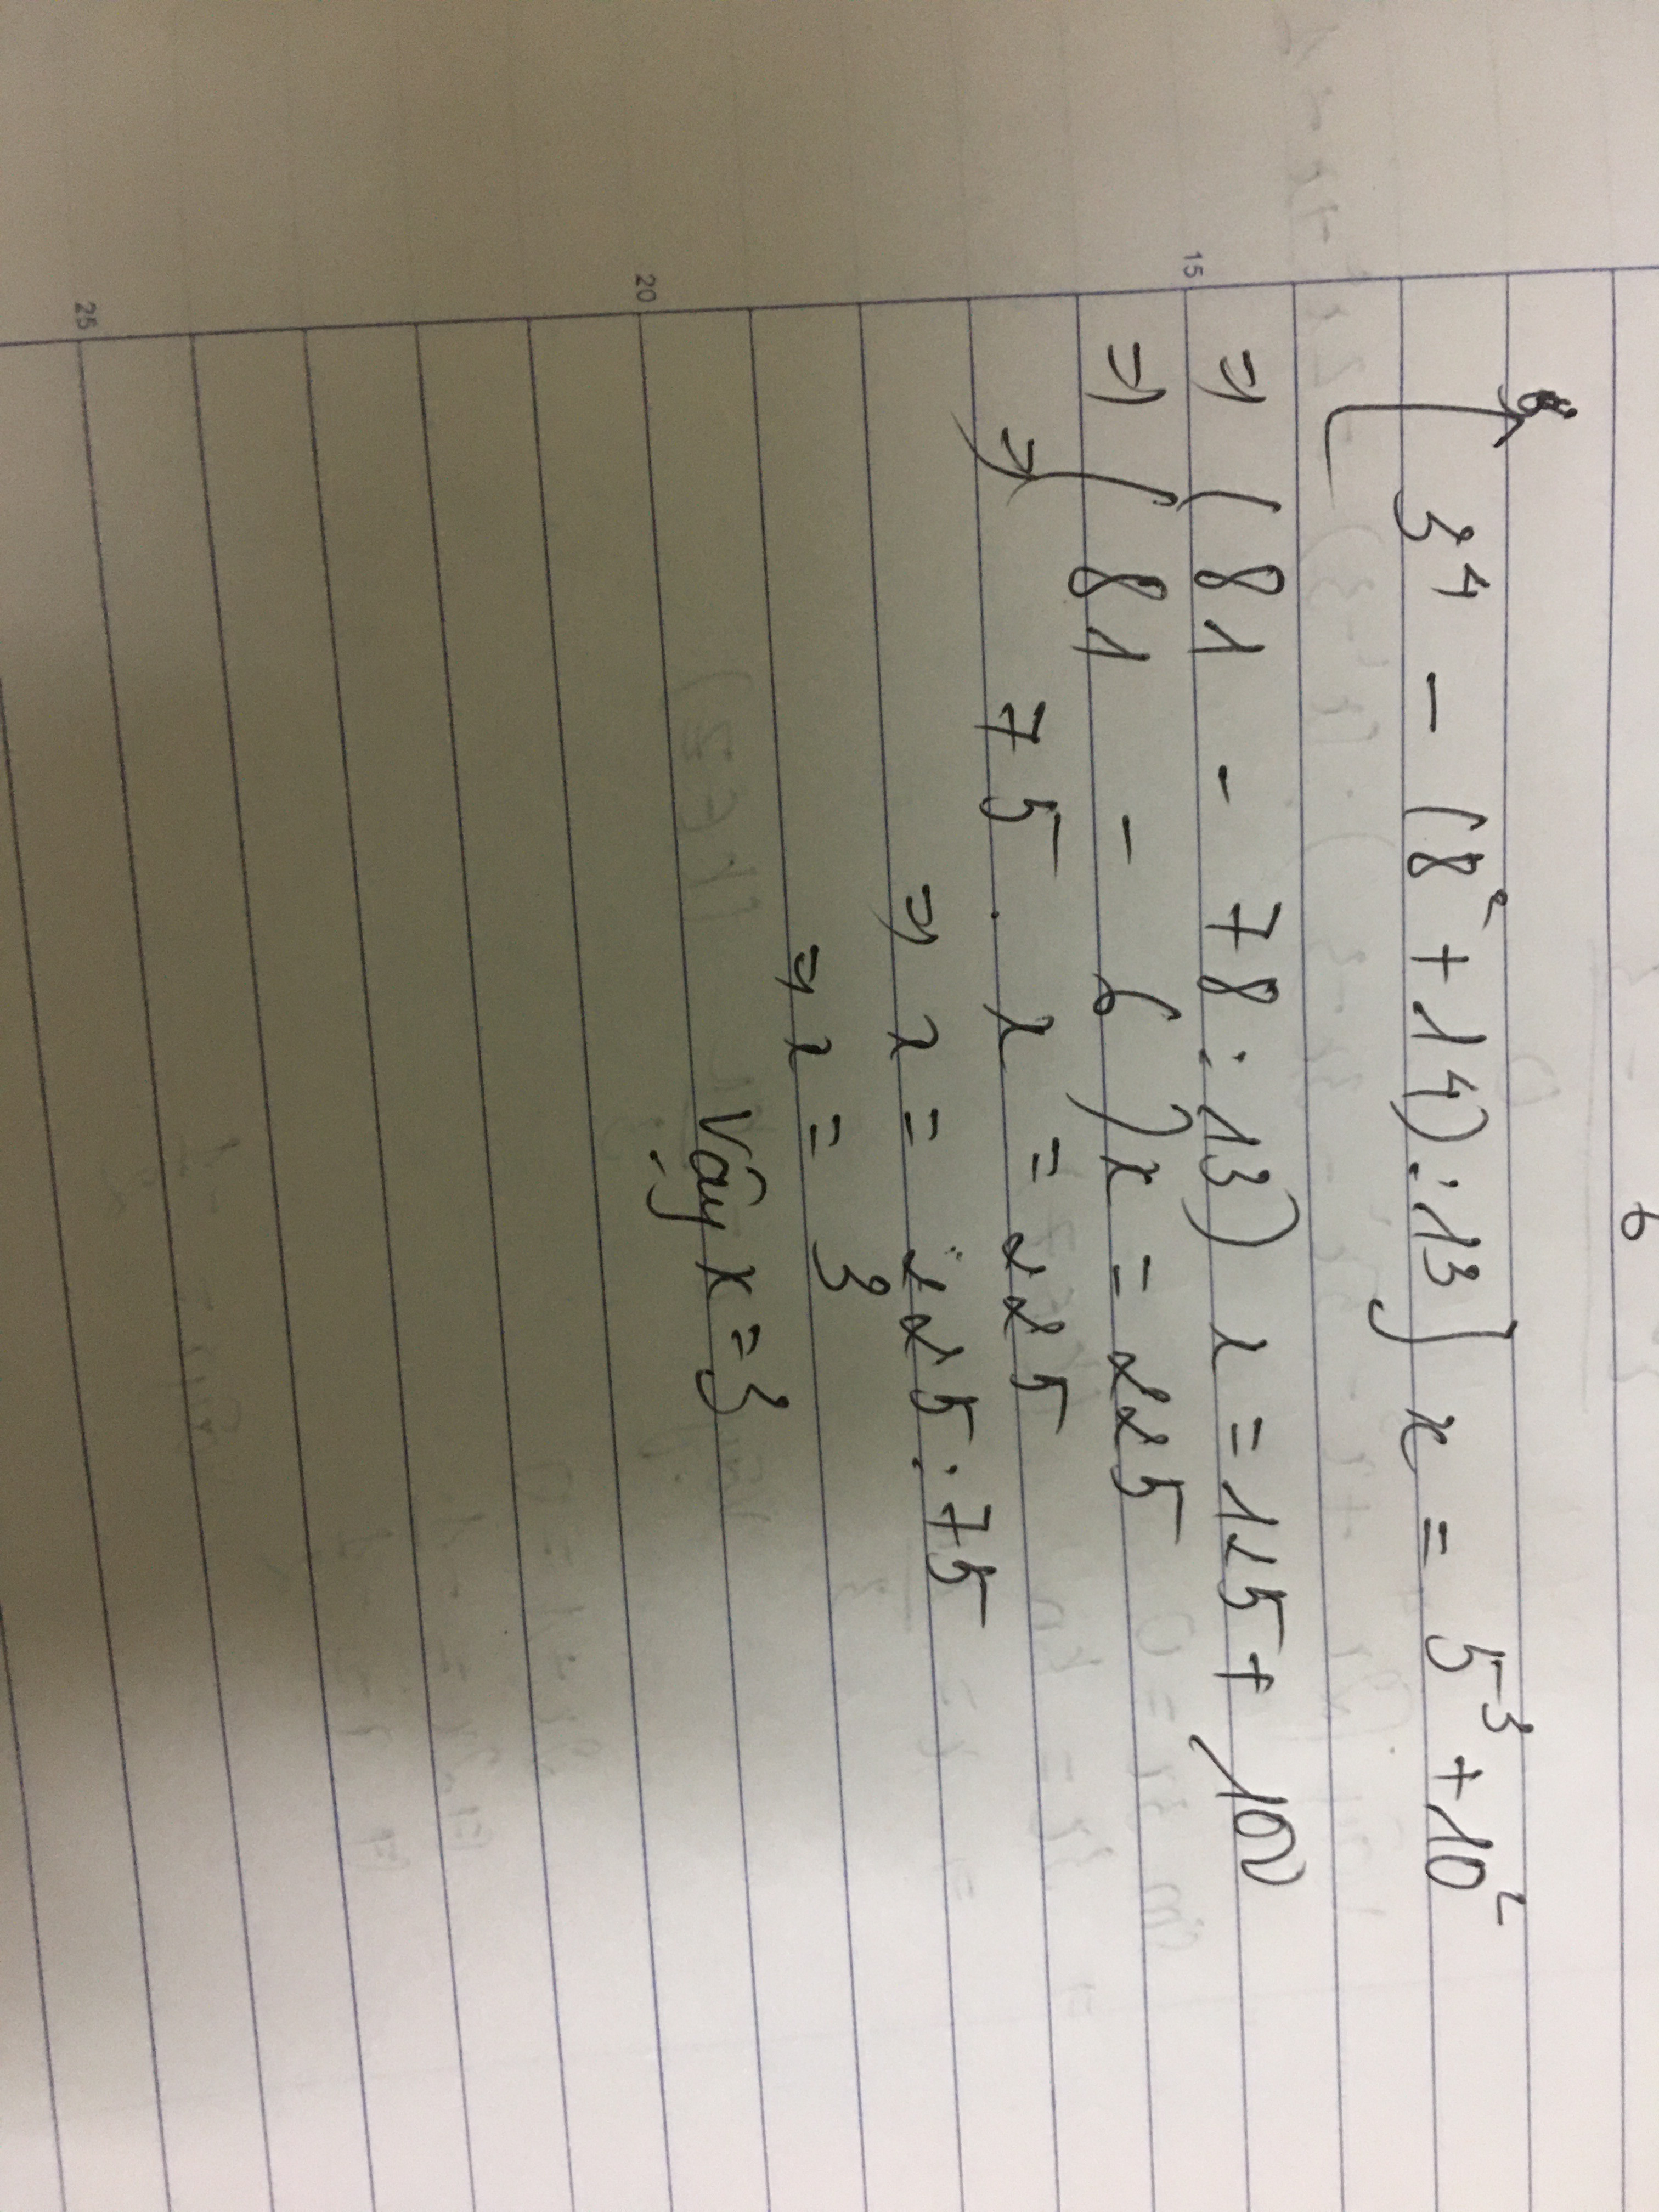 [3⁴ - (8² + 14) : 13] x = 5³ + 10²
=> (81 - 78 : 13) x = 125 + 100
=> (81 - 6) x = 225
=> 75 . x = 225
=> x = 225 : 75
=> x = 3
Vậy x = 3
15
20
25